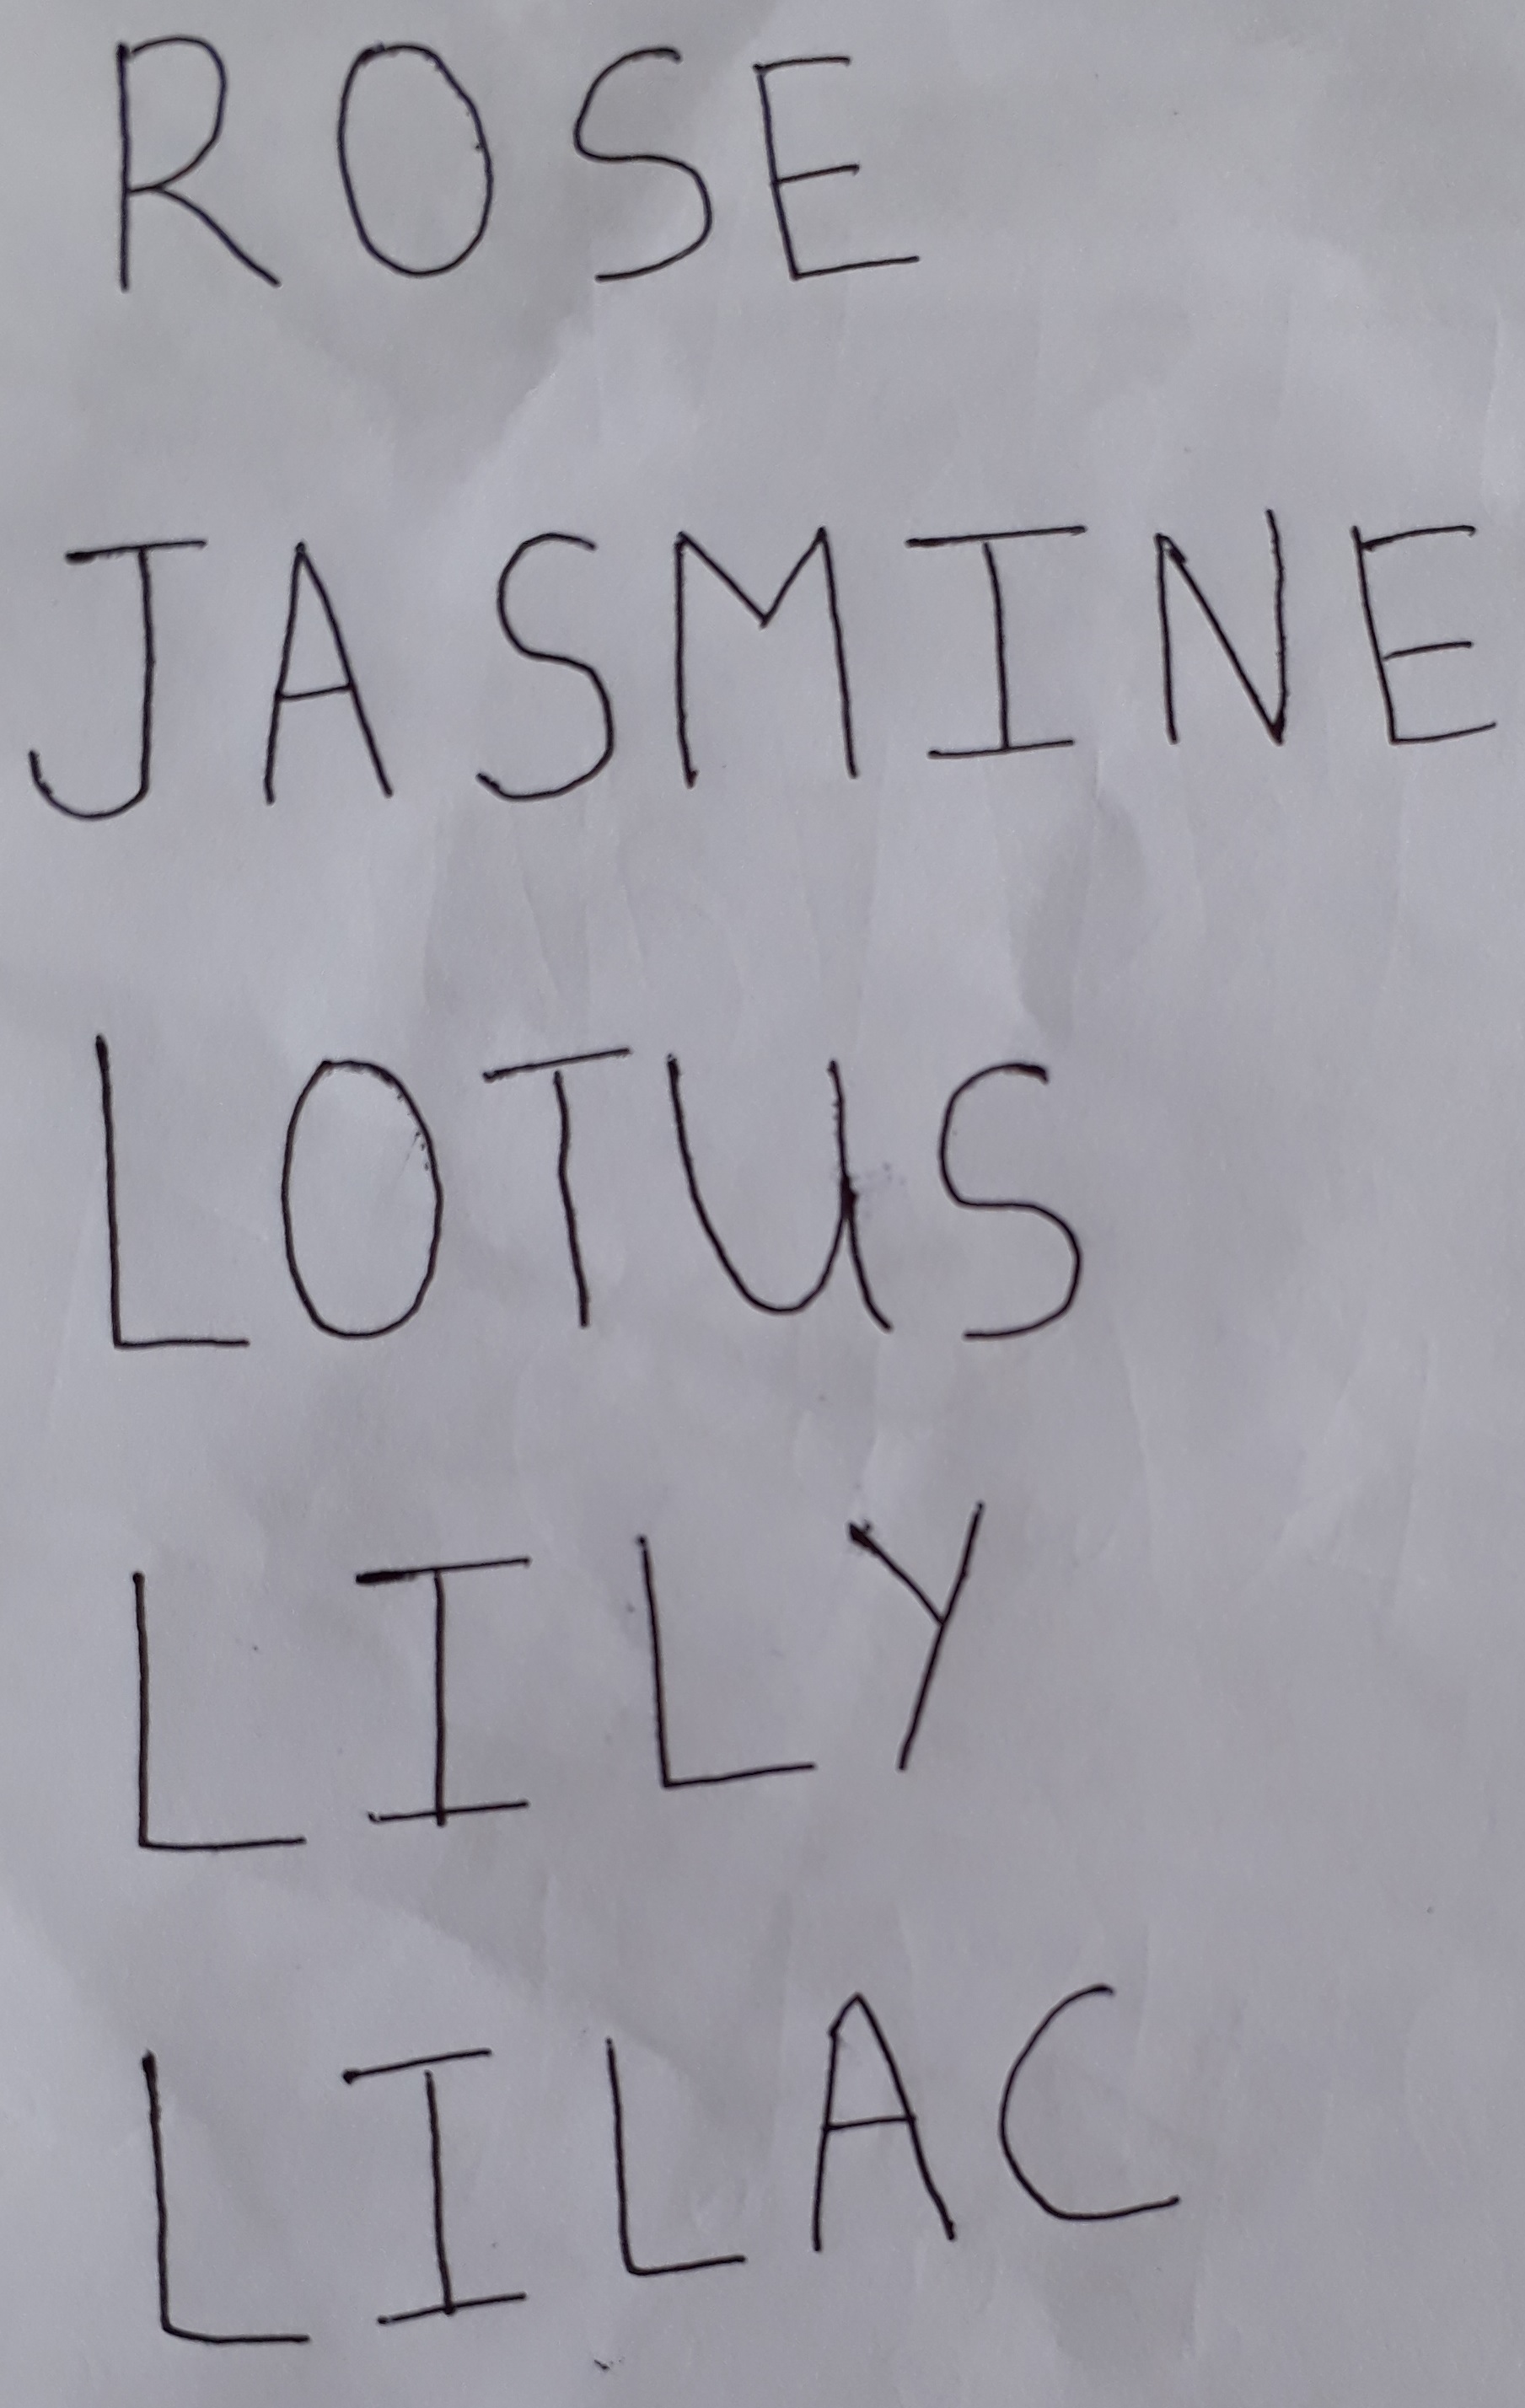 ROSE
JASMINE
LOTUS
LILY
LILAC